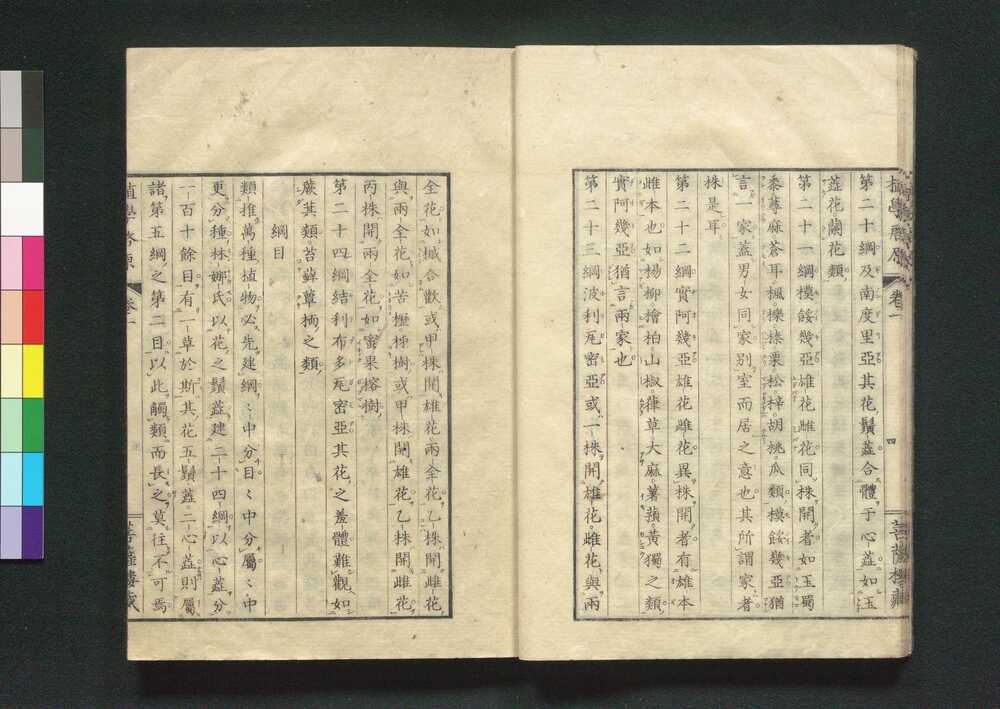 植學啓原 卷一 四 菩薩樓藏
第二十綱及南度里亞其花鬚蕋合體于心蕋如玉
蕋花蘭花類
第二十一綱模餒幾亞雄花雌花同株開者如玉蜀
黍蕁麻蒼耳楓櫟榛栗松梓胡桃瓜類模餒幾亞猶
言一家蓋男女同家別室而居之意也其所謂家者
株是耳
第二十二綱實阿幾亞雄花雌花異株開者有雄本
雌本也如楊柳檜柏山椒葎草大麻薯蕷黃獨之類
實阿幾亞猶言兩家也
第二十三綱波利瓦密亞或一株開雄花雌花與兩
全花如槭合歡或甲株開雄花兩全花乙株開雌花
與兩全花如苦櫪樹或甲株開雄花乙株開雌花
丙株開兩全花如蜜果榕樹
第二十四綱結利布多瓦密亞其花之羞體難觀如
蕨其類苔蘚蕈栭之類
綱目
類推萬種植物必先建綱〻中分目〻中分屬〻中
更分種林娜氏以花之鬚蕋建二十四綱以心蕋分
一百十餘目有一草於斯其花五鬚蕋二心蕋則屬
諸第五綱之第二目以此觸類而長之莫往不可焉
植學啓原 卷一 菩薩樓藏